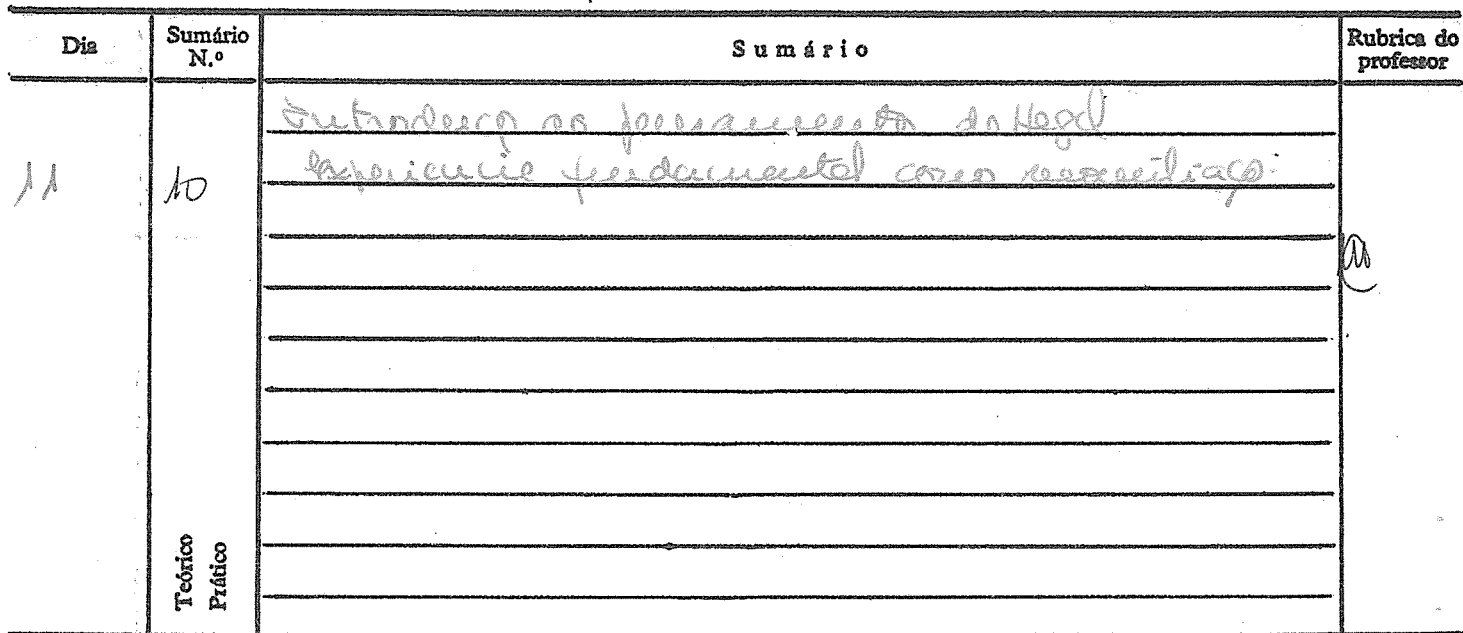 Dia
Sumário N.º
Sumário
Rubrica do professor
Introdução ao pensamento de Hegel
11
10
Experiência fundamental como reconciliação.
Teórico
Prático